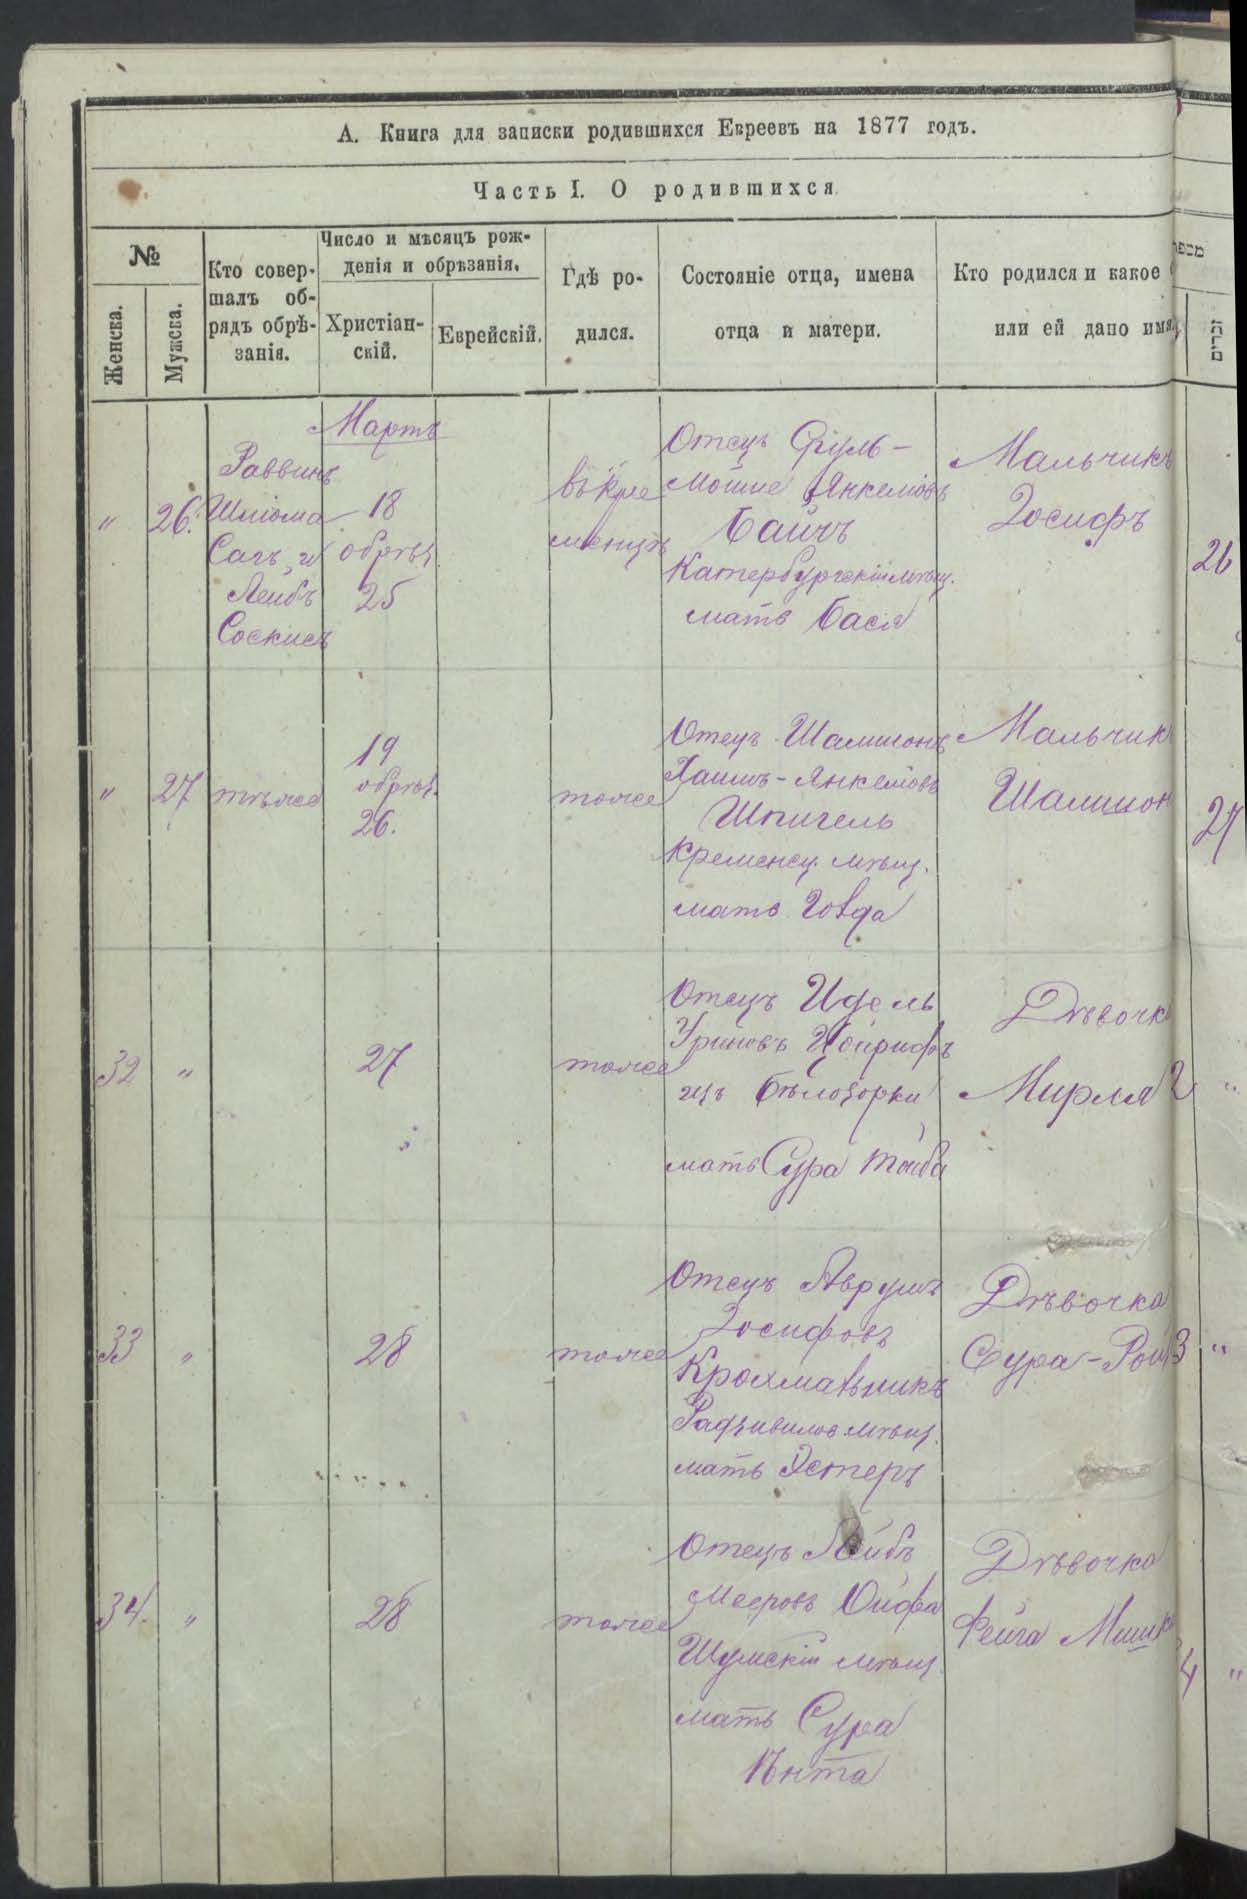 А. Книга для записки родившихся Евреевъ на 1877 годъ.
Часть I. О родившихся
№
Женска.
Мужска.
Кто совер-
шалъ об-
рядъ обрѣ-
занія.
Число и мѣсяцъ рож-
денія и обрѣзанія.
Христіан-
скій.
Еврейскій.
Гдѣ ро-
дился.
Состояніе отца, имена
отца и матери.
Кто родился и какое
или ей дано имя
מספר
זכרים
Мартъ
" 26.
Раввинъ
Шліома
Сагъ и
Лейбъ
18
обрѣз.
25
въ Кре
менцѣ
Отецъ Сруль-
Мошне Янкелiовъ
Байчъ
Катербургскій мѣщ.
мать Бася
Мальчикъ
Iосифъ
26
" 27
тѣже
19
обрѣз.
26.
тоже
Отецъ Шамшонъ
Хаимъ-Янкелiовъ
Шпигель
Кременец. мѣщ.
мать Говда
Мальчик
Шамшон
27
32 "
27
тоже
Отецъ Идель
изъ Бѣлозорки
мать Сура Тайба
Дѣвочк
Мирля
2 "
33 "
28
тоже
Отецъ Аврумъ
Iосифовъ
Крохмальникъ
Радзивилов мѣщ.
мать Эстеръ
Дѣвочка
Сура-Рой
3 "
34. "
28
тоже
Отецъ Лейбъ
Мееровъ Ойфа
Шумскій мѣщ.
мать Сура
Ѣнта
Дѣвочка
Фейга
4 "